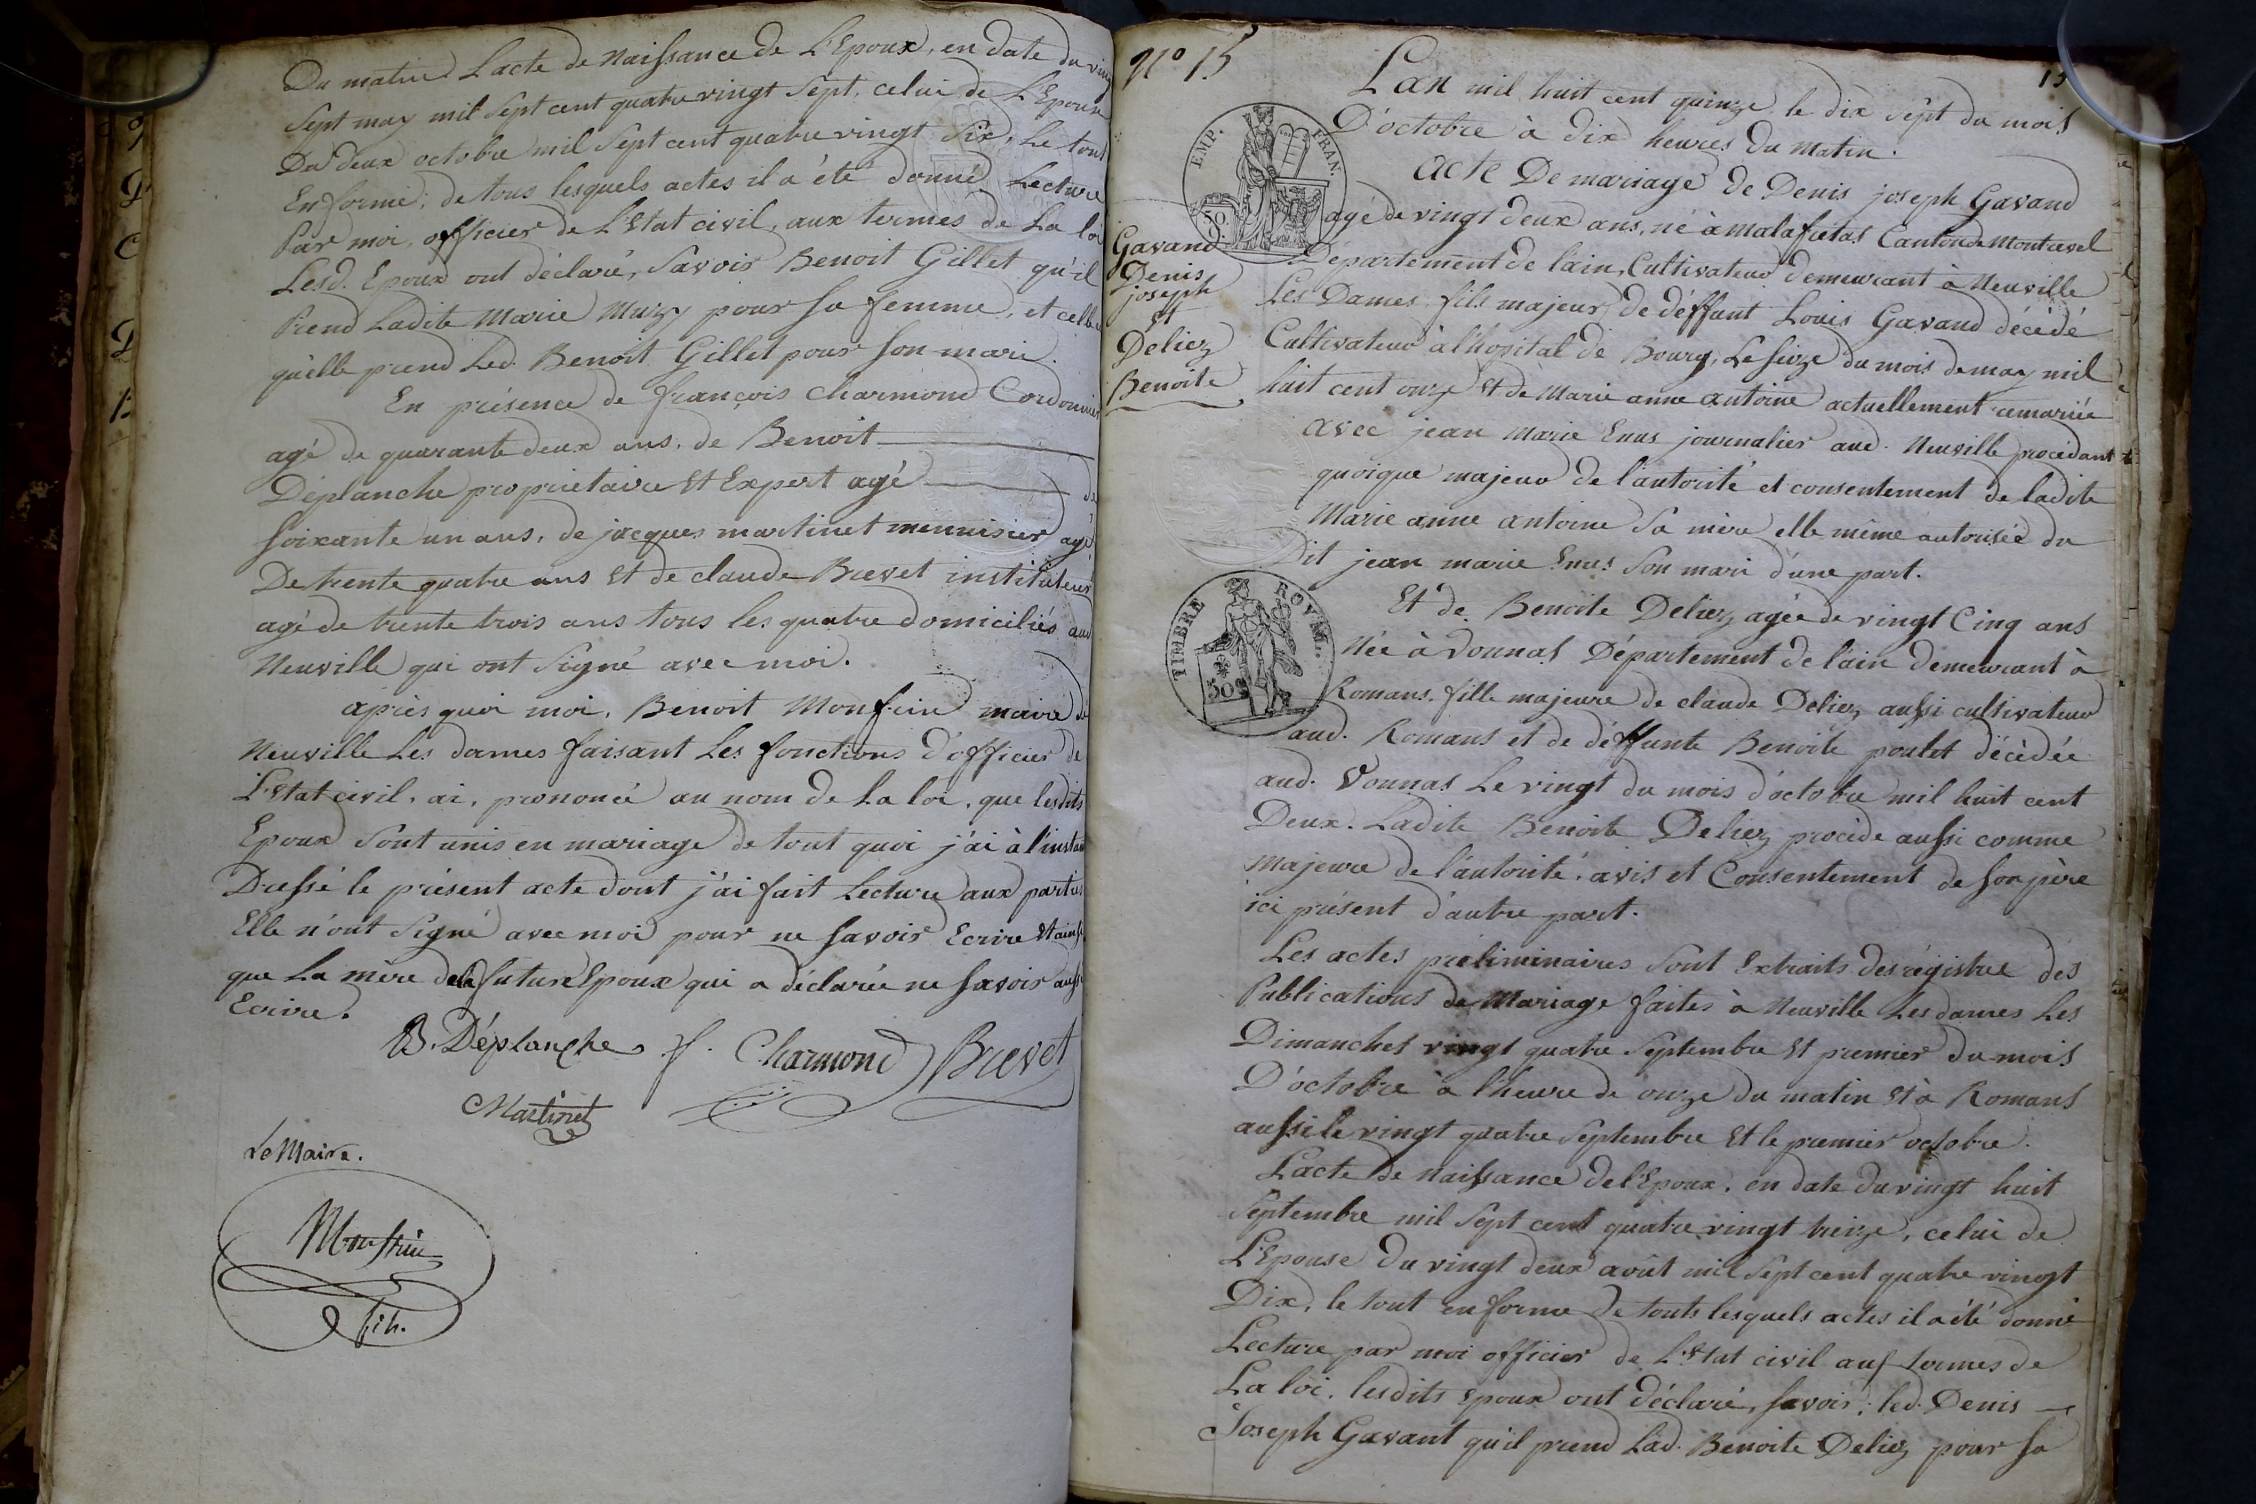 Du matin L'acte de Naissance de L'Epoux, en date du vingt
Sept may mil Sept cent quatre vingt Sept, celui de L'Epouse
Du deux octobre mil Sept cent quatre vingt Six, Le tout
En forme; de tous lesquels actes il a été donné Lecture
Par moi, officier de L'Etat civil, aux termes de La loi
Lesd. Epoux ont déclaré, Savoir Benoit Gillet qu'il
Prend Ladite Marie Muzy pour Sa femme, et celle
qu'elle prend Led. Benoit Gillet pour Son mari.
En présence de françois Charmond Cordonnier
agé de quarante deux ans, de Benoit
Déplanche propriétaire Et Expert agé de
Soixante un ans, de jacques martinet mennisier agé
De trente quatre ans Et de claude Brevet instituteur
agé de trente trois ans tous les quatre domiciliés aud
Neuville qui ont Signé avec moi.
après quoi moi, Benoit Monfrin maire de
Neuville Les dames faisant Les fonctions D'officier de
L'Etat civil, ai, prononcé au nom de La loi, que lesdits
Epoux Sont unis en mariage de tout quoi j'ai à l'instant
Dressé le présent acte dont j'ai fait Lecture aux parties
Elle n'ont Signé avec moi pour ne Savoir Ecrire Et ainsi
que La mère de la future Epoux qui a déclarée ne Savoir aussi
Ecrire.
B. Déplanche f. Charmond Brevet
Martinet
Le Maire.
Monfrin
N° 15
15
L'an mil huit cent quinze le dix Sept du mois
D'octobre à dix heures du Matin.
EMP. FRAN.
50
Acte De mariage de Denis joseph Gavand
agé de vingt deux ans, né à malafretas Canton de Montrevel
Département de l'ain, Cultivateur demeurant à Neuville
Les Dames fils majeur de déffunt Louis Gavand décédé
Cultivateur à l'hopital de Bourg, Le Seize du mois de may mil
huit cent onze Et de Marie anne antoine actuellement remariée
Gavand
Denis
joseph
Et
Deliez
Benoite
avec jean Marie Enus journalier aud. Neuville procédant
quoique majeur de l'autorité et consentement de ladite
Marie anne antoine Sa mère elle même autorisée du
Dit jean marie Enus Son mari d'une part.
TIMBRE ROYAL.
50
Et de Benoite Deliez agée de vingt Cinq ans
Née à Vonnas Département de l'ain demeurant à
Romans, fille majeure de claude Deliez aussi cultivateur
aud. Romans et de déffunte Benoite poulet décédée
aud. Vonnas Le vingt du mois d'octobre mil huit cent
Deux. Ladite Benoite Deliez procède aussi comme
Majeure de l'autorité, avis et Consentement de Son père
ici présent d'autre part.
Les actes préliminaires Sont Extraits des régistre des
Publications de Mariage faites à Neuville Les dames Les
Dimanches vingt quatre Septembre Et premier du mois
D'octobre à l'heure de onze du matin Et à Romans
aussi le vingt quatre Septembre Et le premier octobre.
L'acte de Naissance de l'Epoux, en date du vingt huit
Septembre mil Sept cent quatre vingt treize, celui de
L'Epouse du vingt deux août mil Sept cent quatre vingt
Dix, le tout en forme De touts lesquels actes il a été donné
Lecture par moi officier de L'Etat civil aux termes de
La loi, lesdits Epoux ont déclaré, Savoir; led. Denis
Joseph Gavant qu'il prend Lad. Benoite Deliez pour Sa